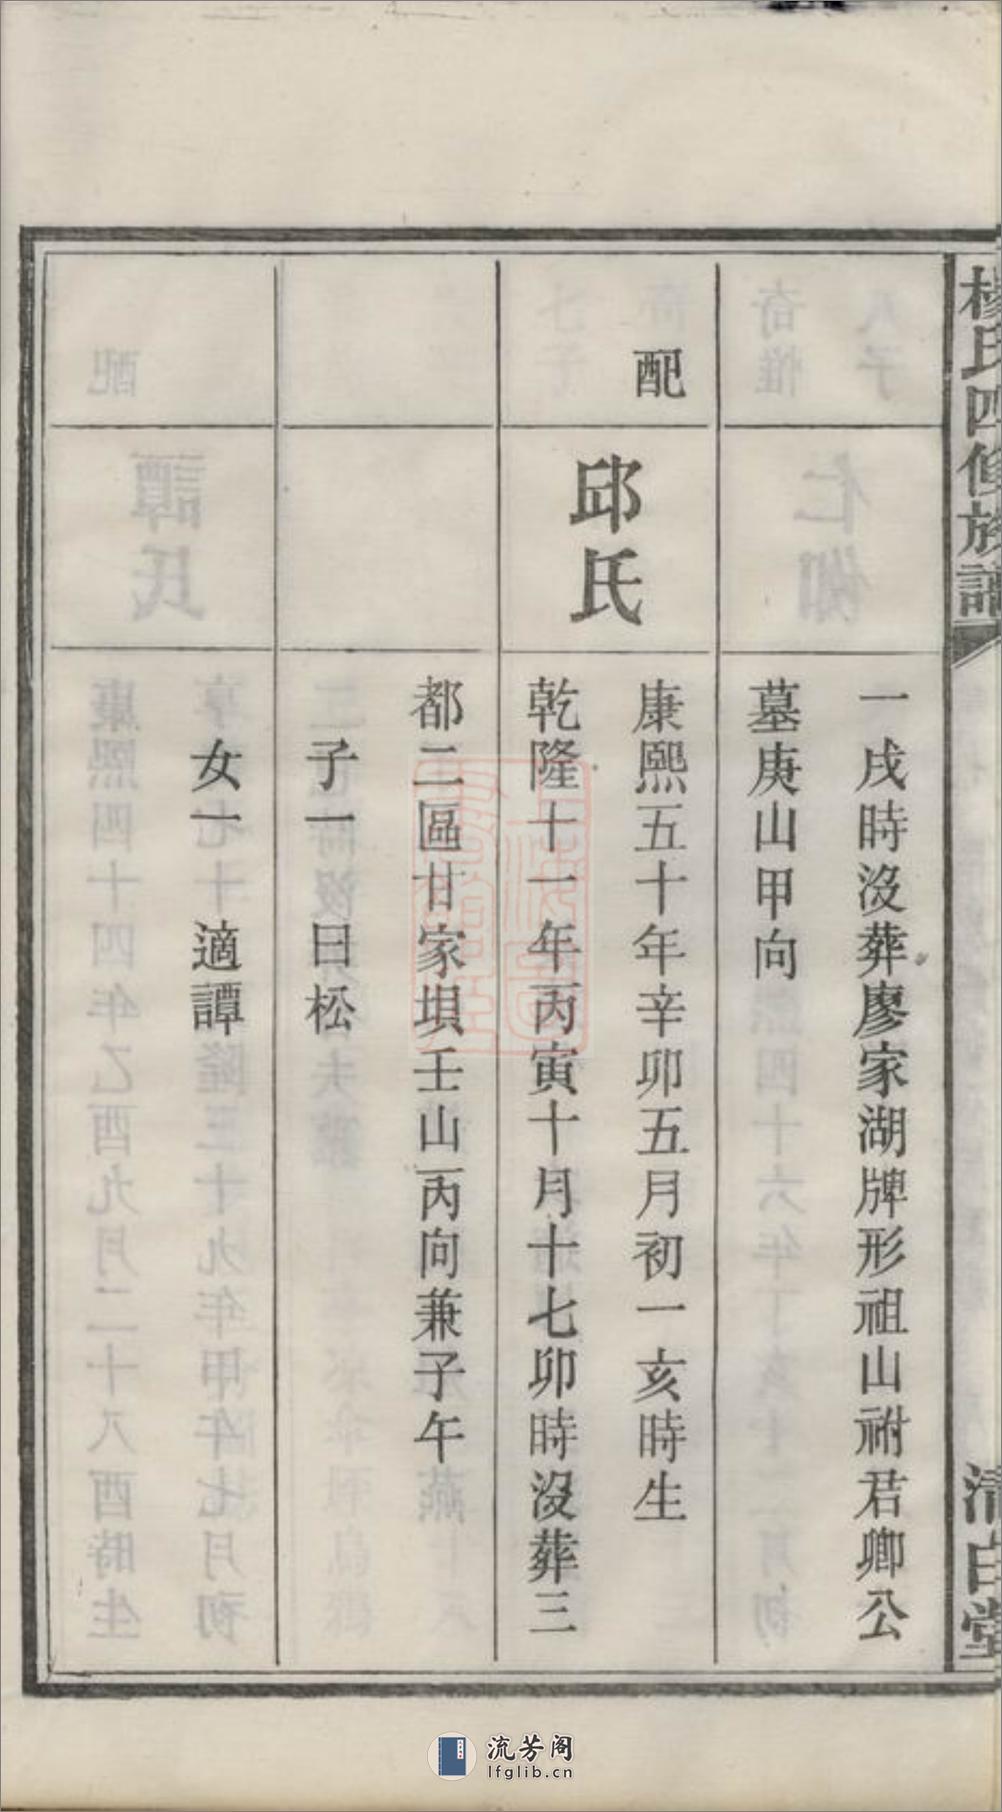 楊氏四修族譜
清白堂
一戌時沒葬廖家湖牌形祖山祔君卿公
墓庚山甲向
配
邱氏
康熙五十年辛卯五月初一亥時生
乾隆十一年丙寅十月十七卯時沒葬三
都二區甘家垻壬山丙向兼子午
子一 曰松
女一 適譚
流芳阁
lfglib.cn